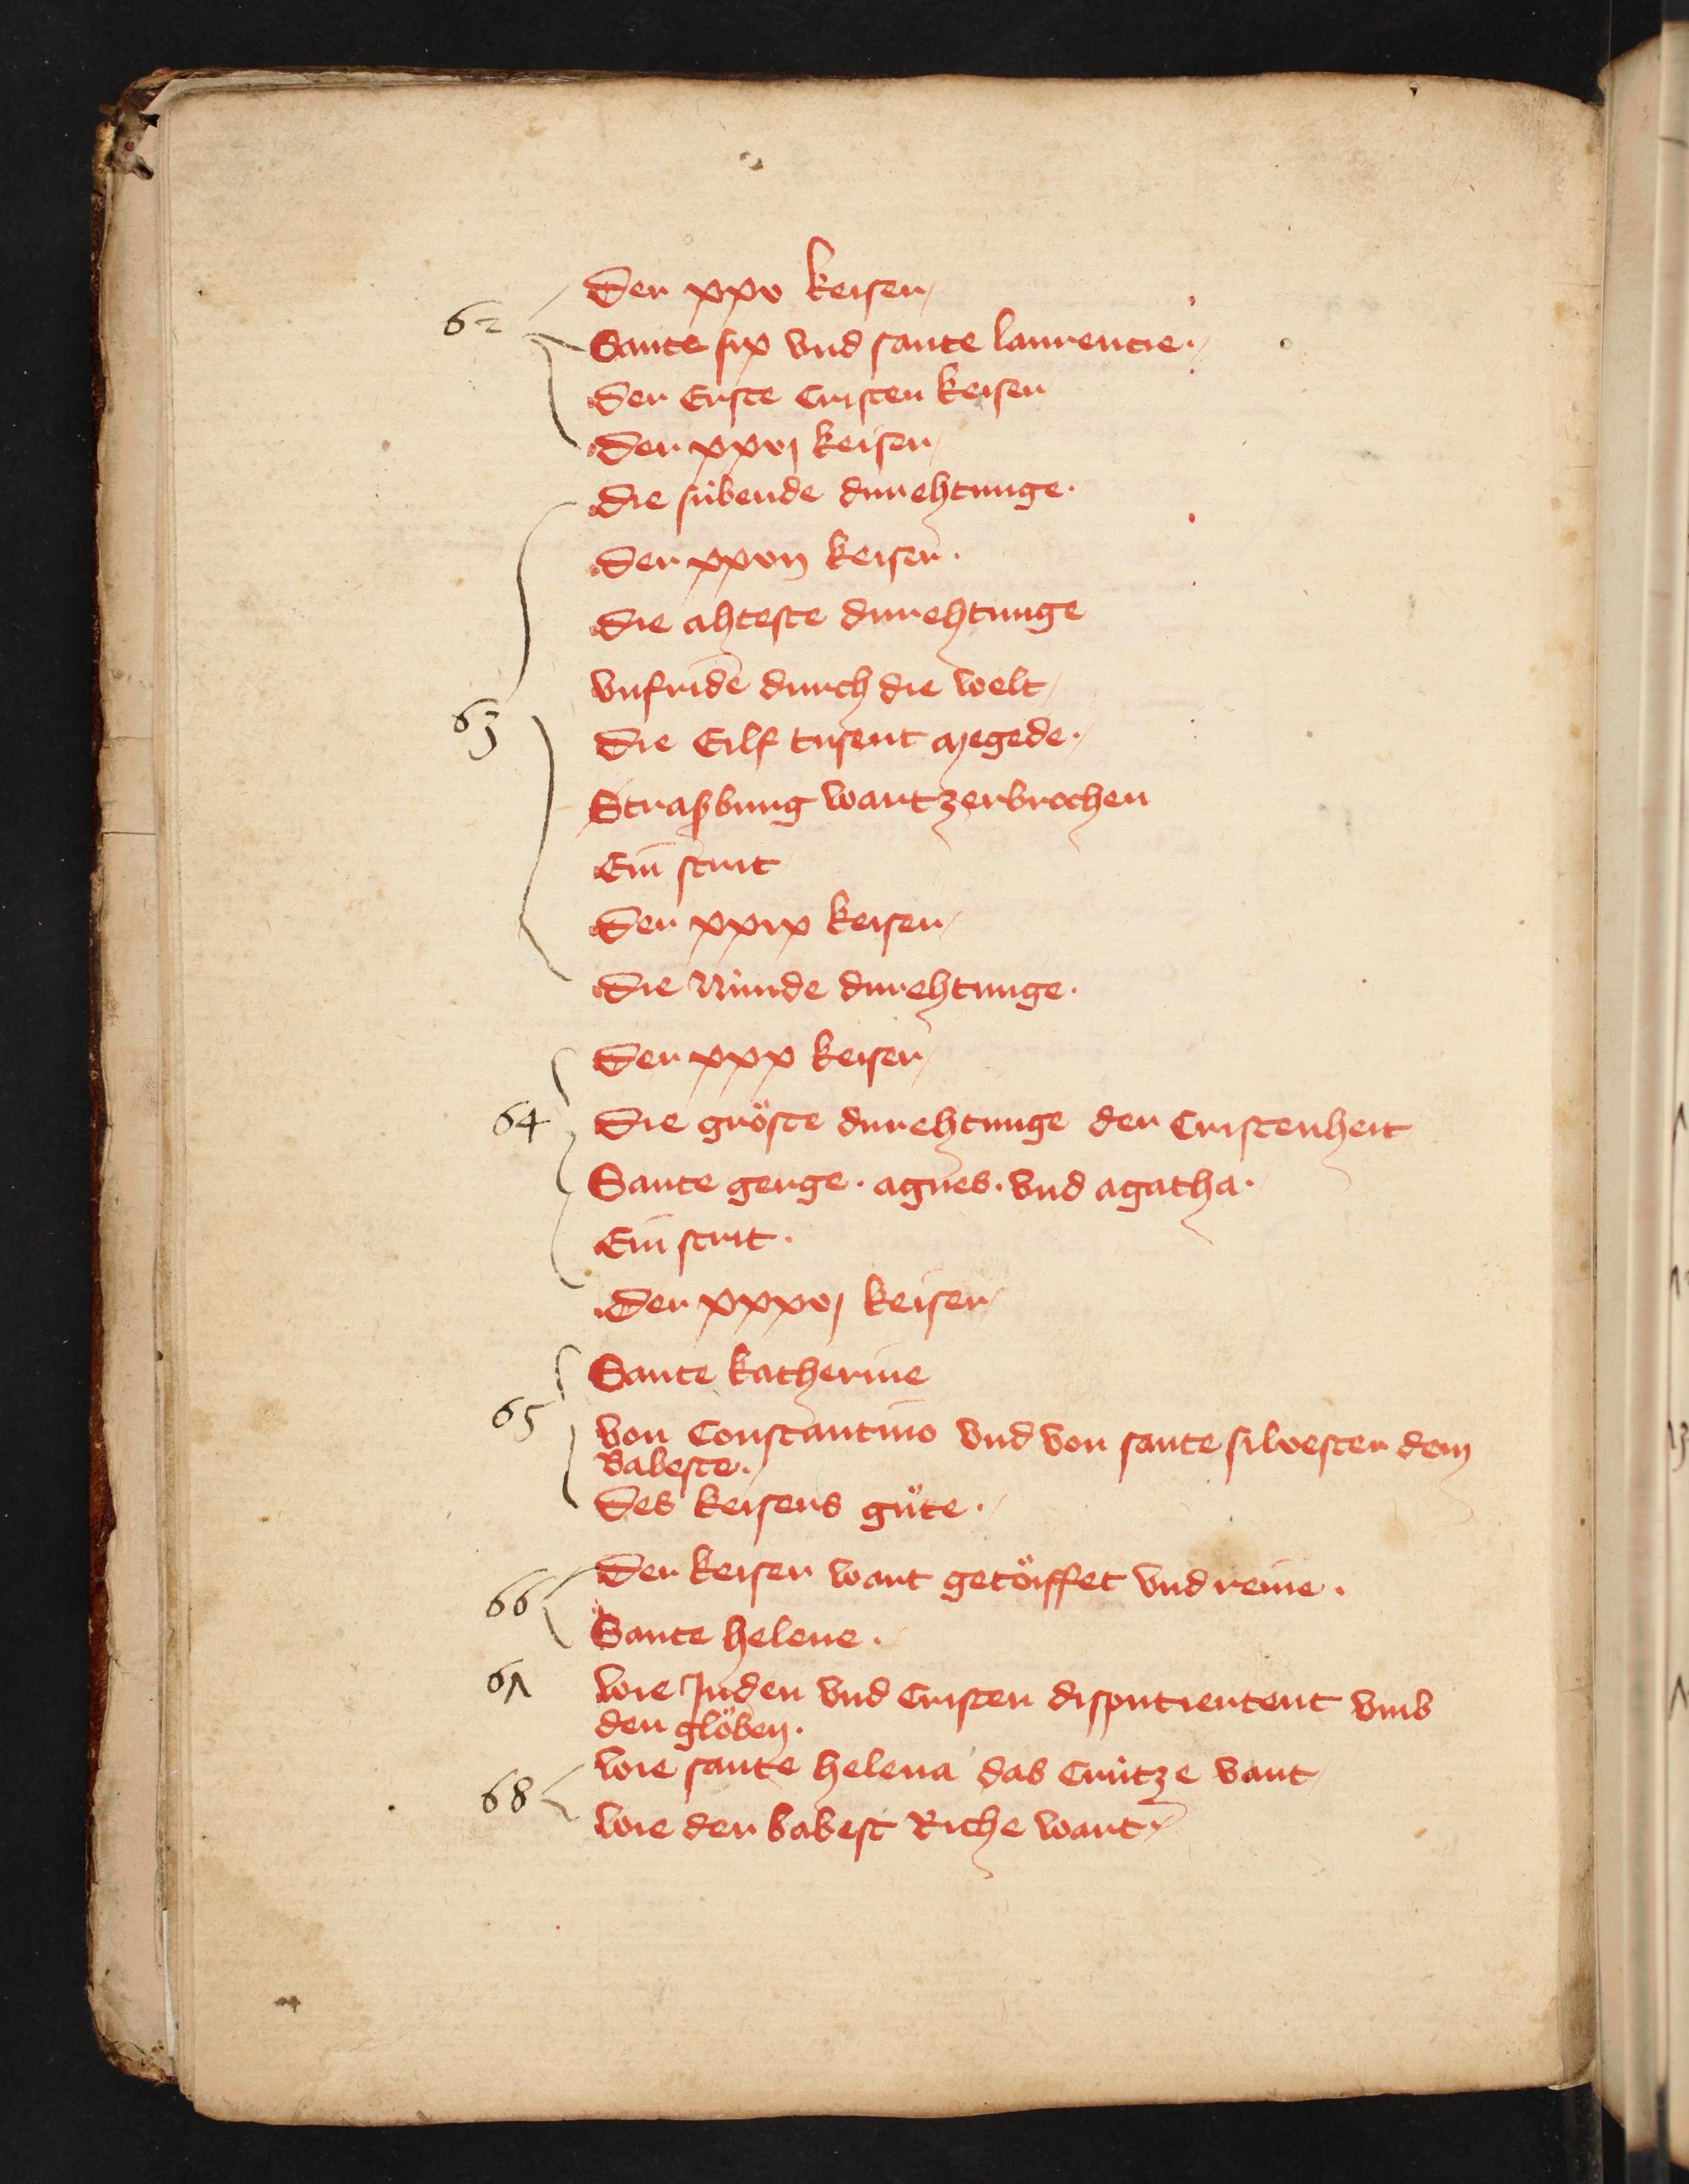 62 Der xxv keiser
Sante six vnd sante laurencie.
Der Erste Cristen keiser
Der xxvj keiser
Die sübende durehtunge.
Der xxvij keiser.
Die ahteste durehtunge
vnfriden durch die welt
63 Die Eilf tusent megede.
Straßburg wart zerbrochen
Ein strit
Der xxix keiser
Die Nünde durehtunge.
Der xxx keiser
64 Die gröste durehtunge der Cristenheit
Sante gerge. agnes. vnd agatha.
Ein strit.
Der xxxvj keiser
Sante katherine
65 von Constantino vnd von sante silvester dem
Babeste.
Des keisers güte.
66 Der keiser wart getöiffet vnd reine.
Sante helene.
67 wie Juden vnd Cristen disputiertent vmb
den glöben.
68 wie sante helena das Crütze vant
wie der babest Riche wart